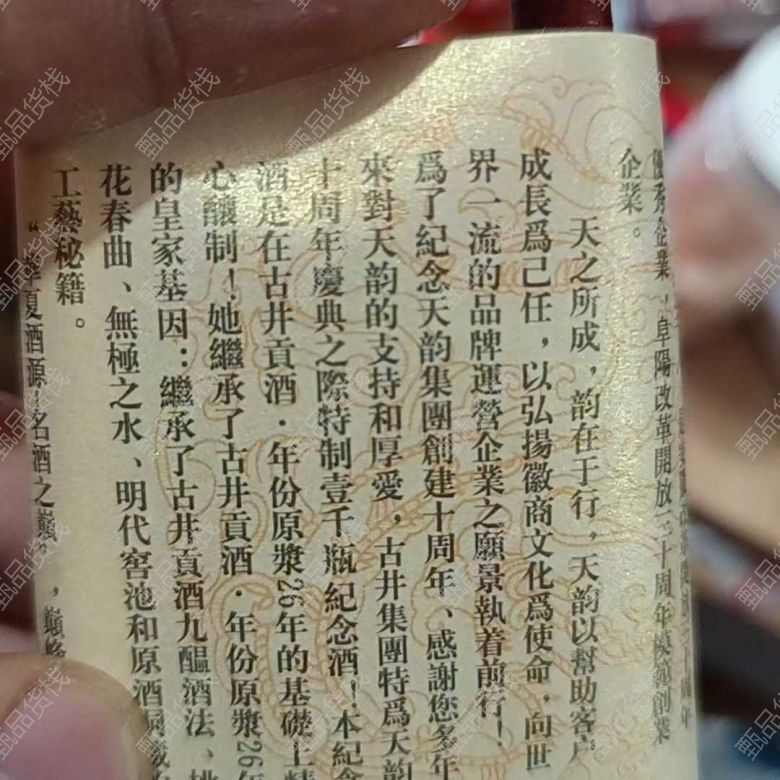 優秀企業、阜陽改革開放三十周年模範創業
企業。
天之所成，韵在于行，天韵以幫助客户
成長爲己任，以弘揚徽商文化爲使命，向世
界一流的品牌運營企業之願景執着前行！
爲了紀念天韵集團創建十周年、感謝您多年
來對天韵的支持和厚愛，古井集團特爲天韵
十周年慶典之際特制壹千瓶紀念酒！本紀念
酒是在古井貢酒·年份原漿26年的基礎上精
心釀制！她繼承了古井貢酒·年份原漿26年
的皇家基因：繼承了古井貢酒九醖酒法、桃
花春曲、無極之水、明代窖池和原酒洞藏
工藝秘籍。
“華夏酒源！名酒之巔”，巔峰
甄品货栈